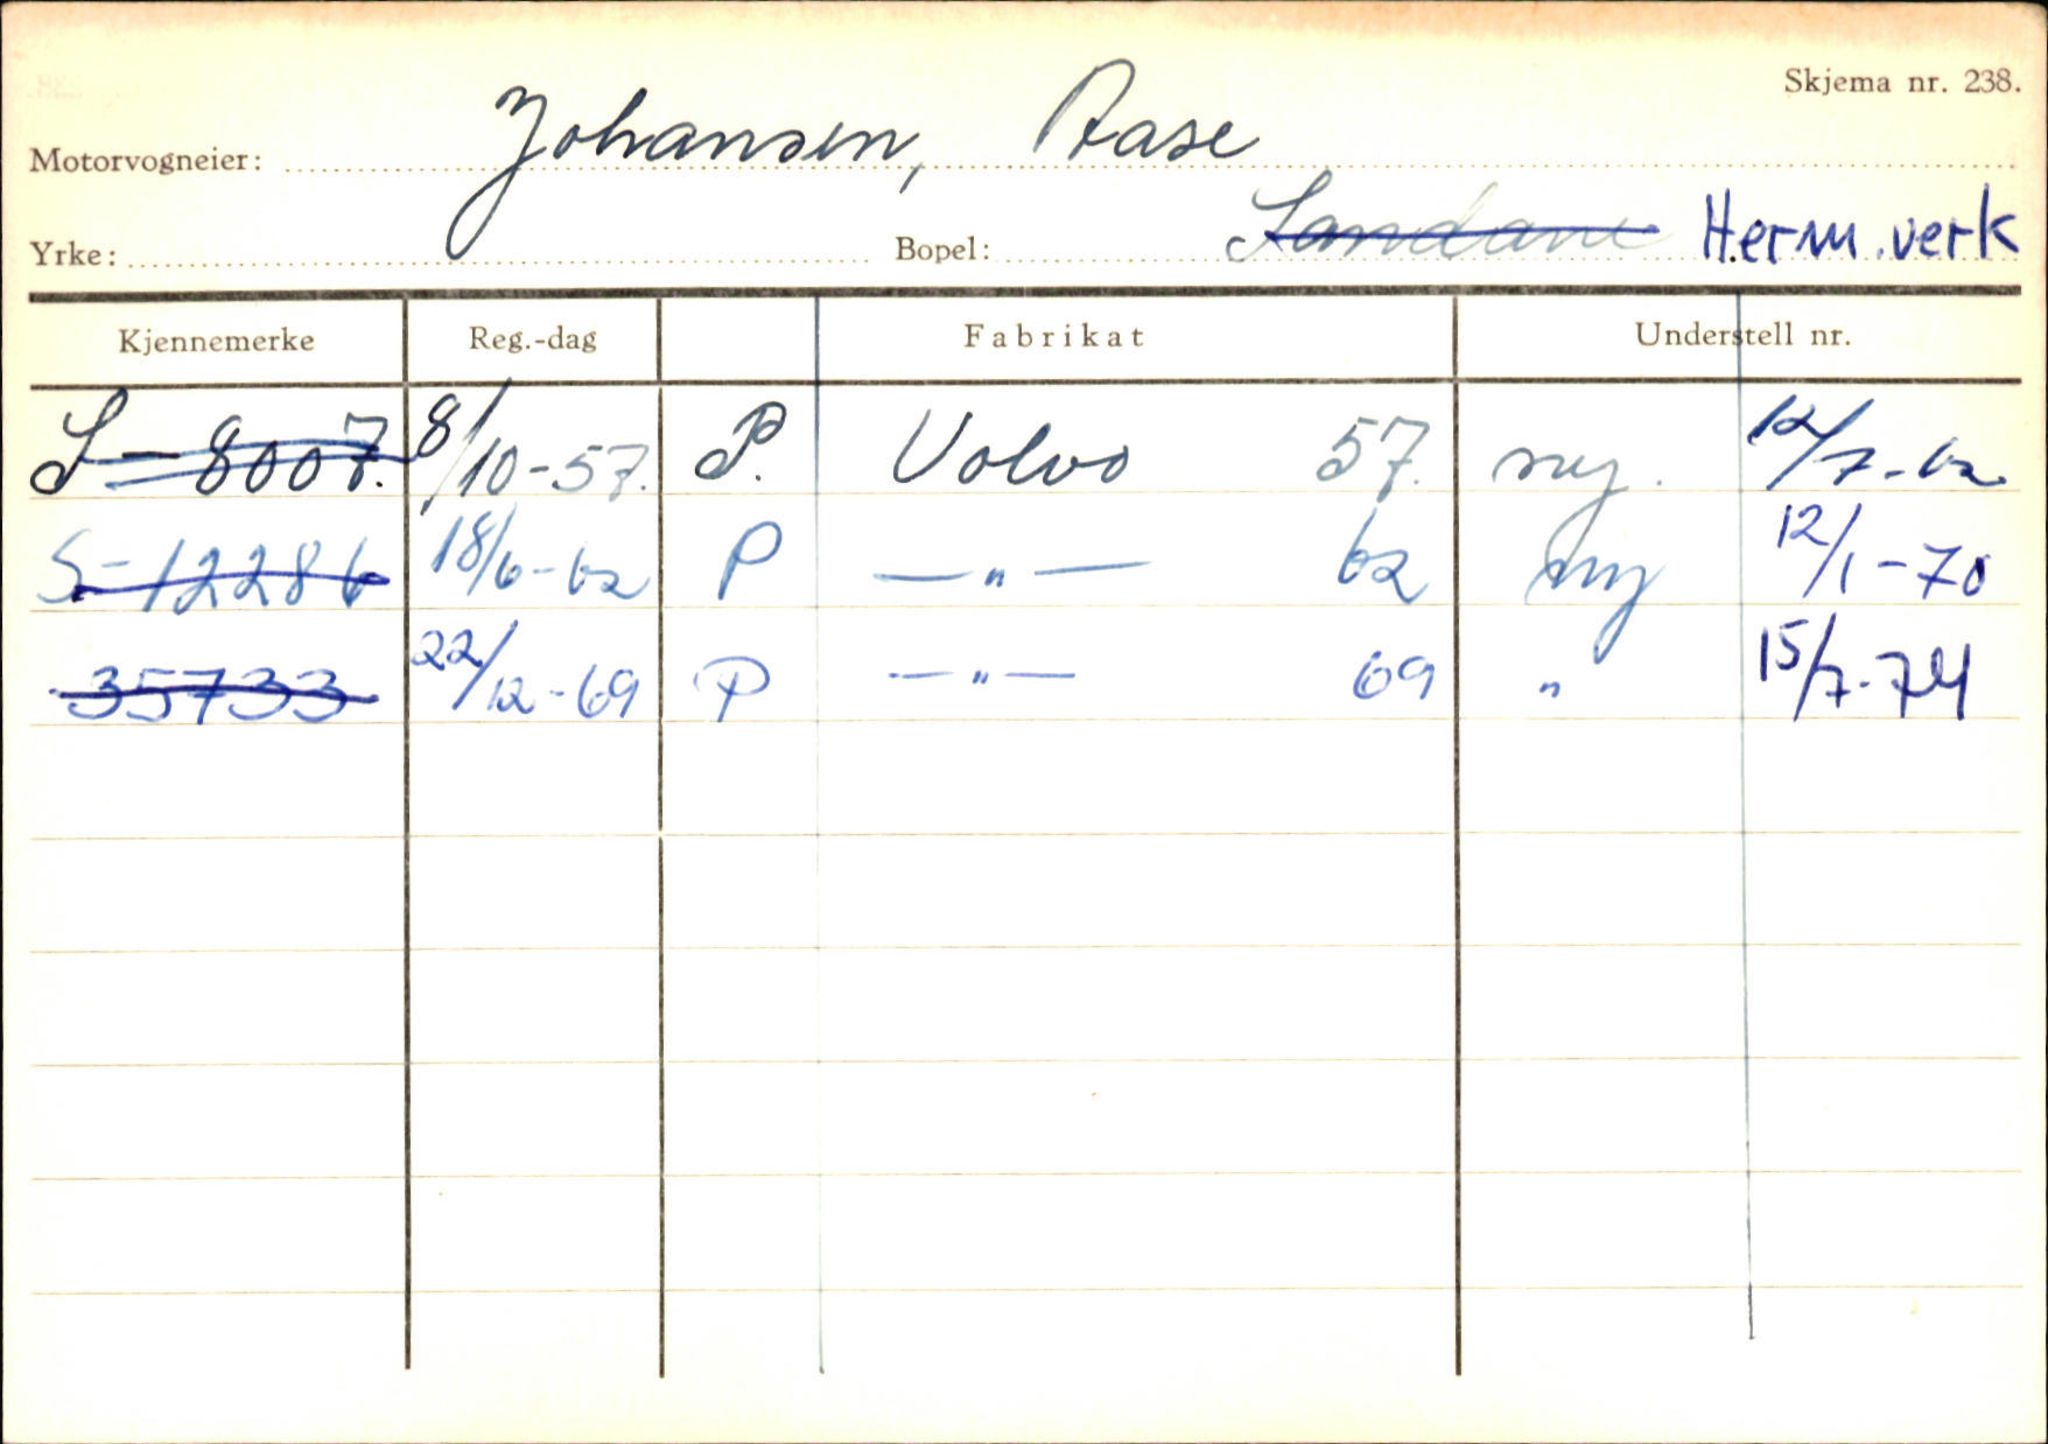 Skjema nr. 238.
Motorvogneier: Johansen, Aase
Yrke: Bopel: Sandane Herm.verk
Kjennemerke Reg.-dag Fabrikat Understell nr.
S-8007. 8/10-57. P. Volvo 57. ny. 12/7-62
S-12286 18/6-62 P —"— 62 ny 12/1-70
35733 22/12-69 P —"— 69 " 15/7-74